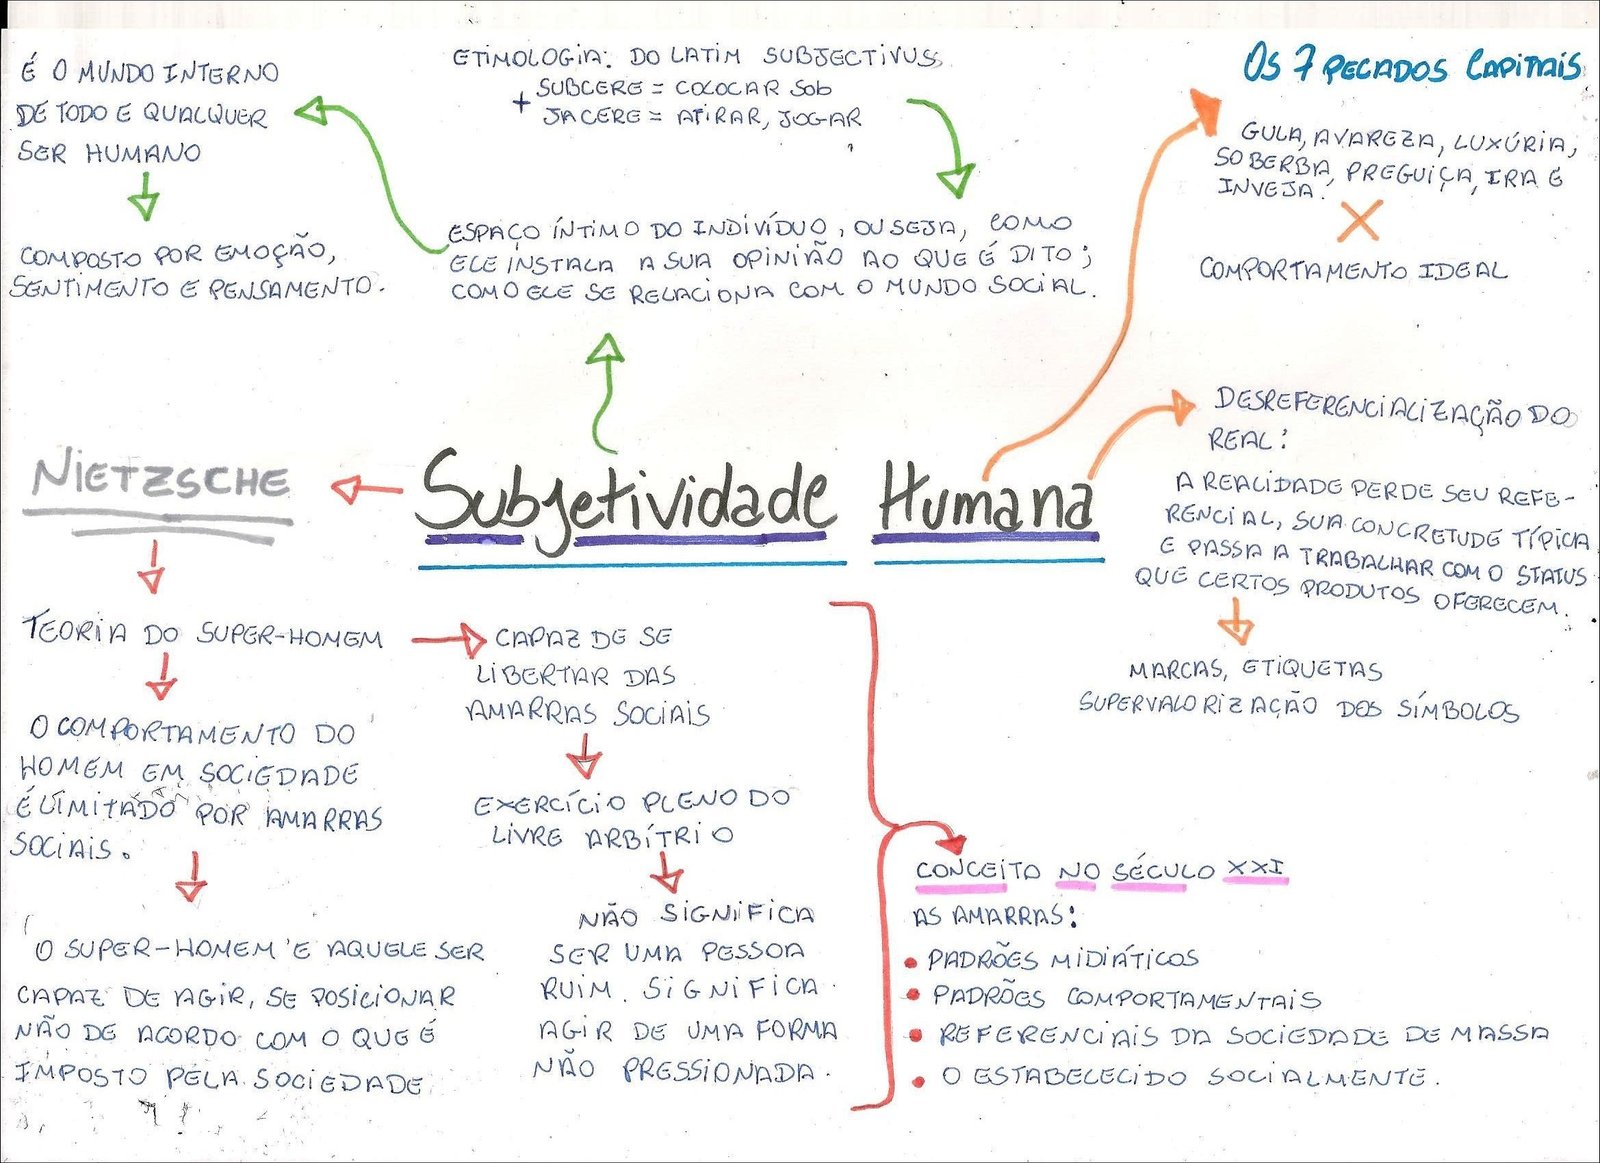 É O MUNDO INTERNO
DE TODO E QUALQUER
SER HUMANO
COMPOSTO POR EMOÇÃO,
SENTIMENTO E PENSAMENTO.
ETIMOLOGIA: DO LATIM SUBJECTIVUS
SUBCERE = COLOCAR SOB
+ JACERE = ATIRAR, JOGAR
ESPAÇO ÍNTIMO DO INDIVÍDUO, OU SEJA, COMO
ELE INSTALA A SUA OPINIÃO AO QUE É DITO;
COMO ELE SE RELACIONA COM O MUNDO SOCIAL.
OS 7 PECADOS CAPITAIS
GULA, AVAREZA, LUXÚRIA,
SOBERBA, PREGUIÇA, IRA E
INVEJA.
X
COMPORTAMENTO IDEAL
DESREFERENCIALIZAÇÃO DO
REAL:
A REALIDADE PERDE SEU REFE-
RENCIAL, SUA CONCRETUDE TÍPICA
E PASSA A TRABALHAR COM O STATUS
QUE CERTOS PRODUTOS OFERECEM.
MARCAS, ETIQUETAS
SUPERVALORIZAÇÃO DOS SÍMBOLOS
Subjetividade Humana
NIETZSCHE
TEORIA DO SUPER-HOMEM
O COMPORTAMENTO DO
HOMEM EM SOCIEDADE
É LIMITADO POR AMARRAS
SOCIAIS.
O SUPER-HOMEM É AQUELE SER
CAPAZ DE AGIR, SE POSICIONAR
NÃO DE ACORDO COM O QUE É
IMPOSTO PELA SOCIEDADE
CAPAZ DE SE
LIBERTAR DAS
AMARRAS SOCIAIS
EXERCÍCIO PLENO DO
LIVRE ARBÍTRIO
NÃO SIGNIFICA
SER UMA PESSOA
RUIM. SIGNIFICA
AGIR DE UMA FORMA
NÃO PRESSIONADA.
CONCEITO NO SÉCULO XXI
AS AMARRAS:
• PADRÕES MIDIÁTICOS
• PADRÕES COMPORTAMENTAIS
• REFERENCIAIS DA SOCIEDADE DE MASSA
• O ESTABELECIDO SOCIALMENTE.